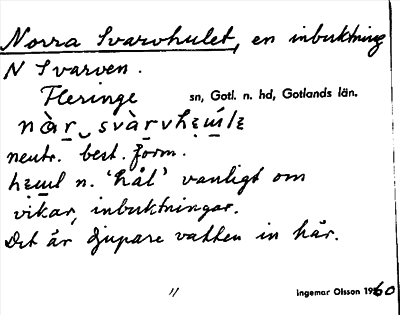 Norra Svarvhulet, en inbuktning
N Svarven.
Fleringe sn, Gotl. n. hd, Gotlands län.
neutr. best. form.
n. 'hål' vanligt om
vikar, inbuktningar.
Det är djupare vatten in här.
11 Ingemar Olsson 1960